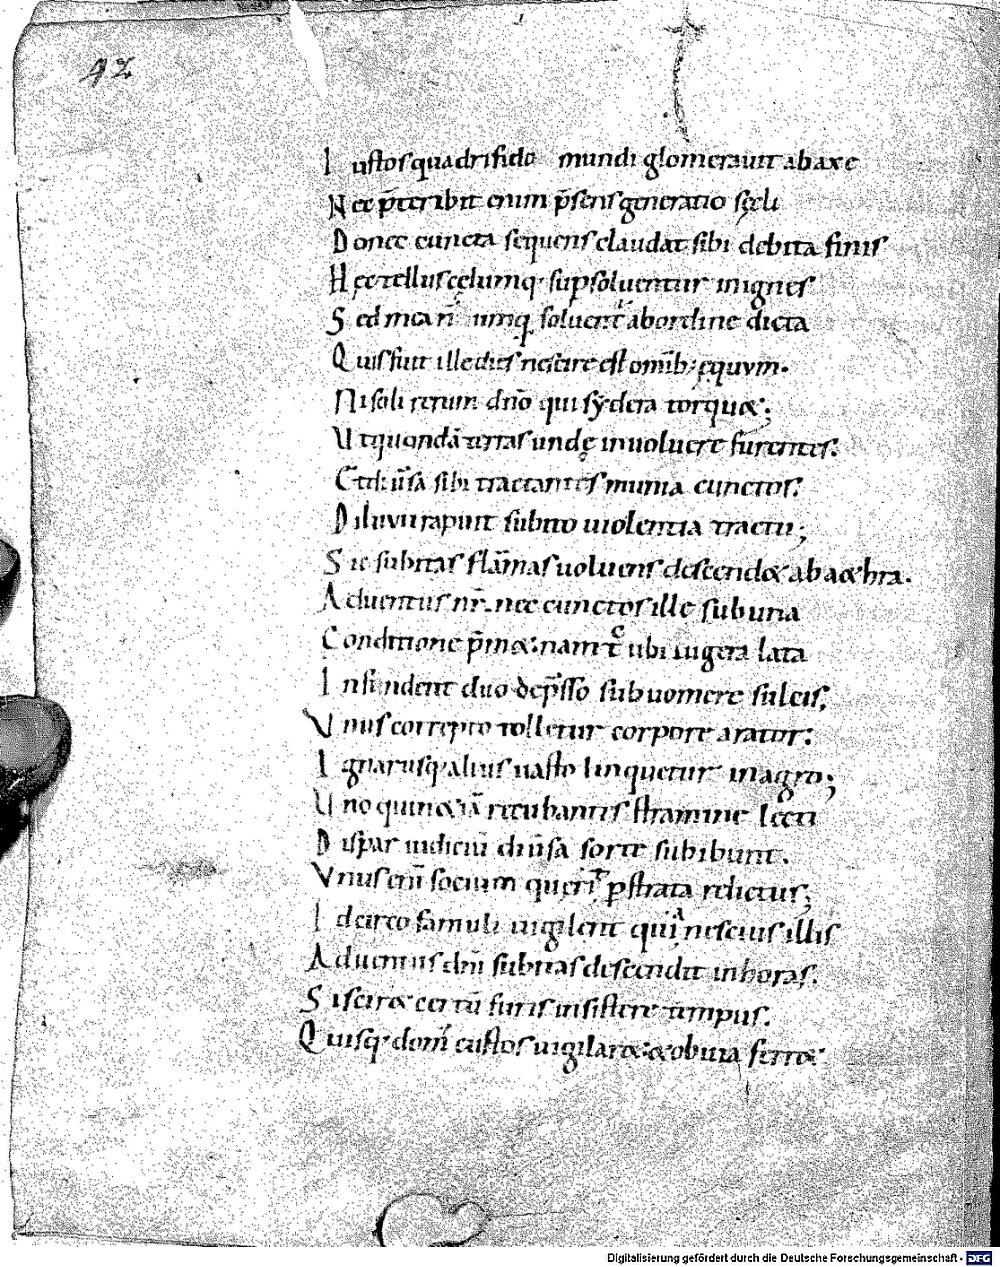 42
I ustos quadrifido mundi glomerauit ab axe
N ec p̄teribit enim p̄sens generatio sęcli
D onec cuncta sequens claudat sibi debita finis
H ęc tellus cęlumq· sup soluentur in ignes
S ed mea n̄ umq soluent̄ ab ordine dicta
Q uis fuit ille dies nescire est omib; ęquvm·
N i soli rerum dn̄o qui sydera torqu&;
U t quondā terras undę inuoluere furentes:
sibi tractantes munia cunctos:
D iluvii rapuit subito uiolentia tractu;
S ic subitas flāmas uoluens descend& ab &hra.
A duentus nr̄ nec cunctos ille sub una
C onditione p̄m&: nam t̄c ubi iugera lata
I nfindent duo dep̄sso sub uomere sulcis;
V nus correpto tolletur corpore arator:
I gnarusq· alius uasto linquetur in agro;
U no quin&iā recubantes stramine lecti
D ispar iudiciū diūsa sorte subibunt.
V nus enī socium querit p̄strata relictus;
I dcirco famuli uigilent quia nescius illis
A duentus dn̄i subitas descendit in horas:
S i scir& certū furis insistere tempus.
Q uisq· dom̄ custos uigilar&: & obuia ferr&:
Digitalisierung gefördert durch die Deutsche Forschungsgemeinschaft - DFG